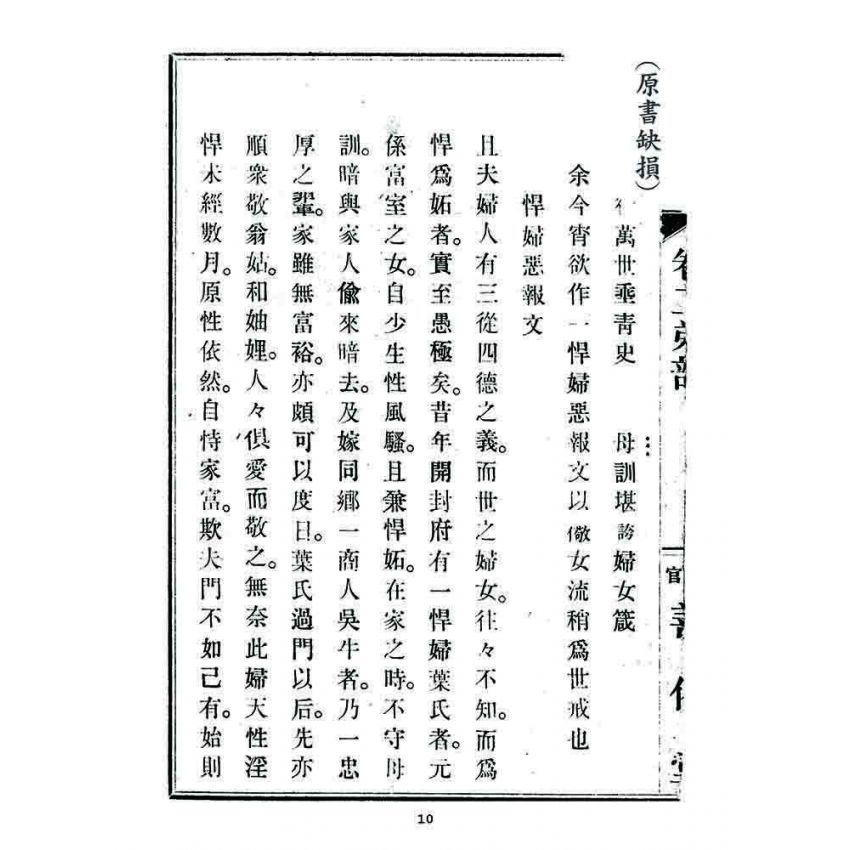 （原書缺損）
萬世垂青史　母訓堪誇婦女箴
余今宵欲作一悍婦惡報文以儆女流稍爲世戒也
悍婦惡報文
且夫婦人有三從四德之義。而世之婦女。往々不知。而爲
悍爲妬者。實至愚極矣。昔年開封府有一悍婦葉氏者。元
係富室之女。自少生性風騷。且兼悍妬。在家之時。不守母
訓。暗與家人偸來暗去。及嫁同鄉一商人吳牛者。乃一忠
厚之輩。家雖無富裕。亦頗可以度日。葉氏過門以后。先亦
順衆敬翁姑。和妯娌。人々俱愛而敬之。無奈此婦天性淫
悍未經數月。原性依然。自恃家富。欺夫門不如己有。始則
10